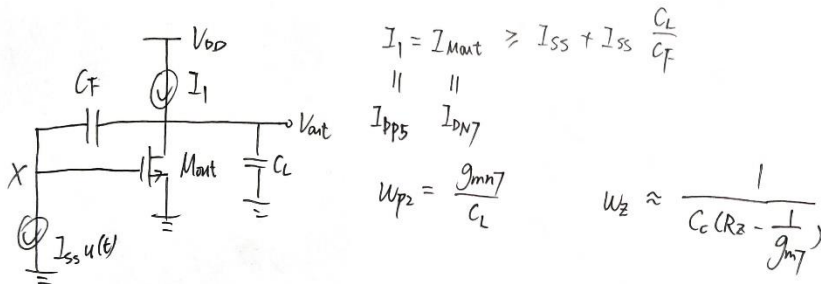 V_DD
C_F
I_1
V_out
X
M_out
C_L
I_SS u(t)
I_1 = I_Mout ≥ I_SS + I_SS C_L/C_F
|| ||
I_DP5 I_DN7
ω_P2 = g_mn7/C_L
ω_z ≈ 1/(C_c(R_z - 1/g_m7))